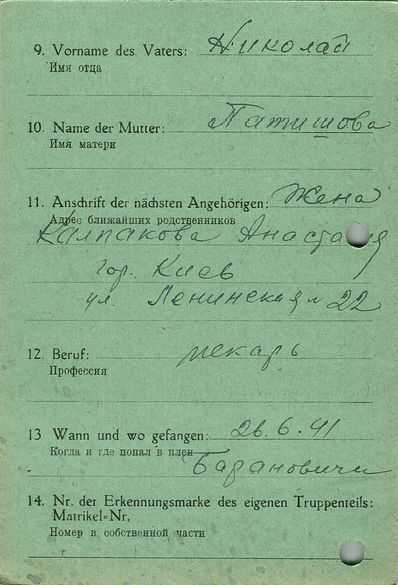 9. Vorname des Vaters: Николай
Имя отца
10. Name der Mutter: Патишова
Имя матери
11. Anschrift der nächsten Angehörigen: Жена
Адрес ближайших родственников
Калпакова Анастасия
гор. Киев
ул. Ленинская 22
12. Beruf: пекарь
Профессия
13 Wann und wo gefangen: 26.6.41
Когда и где попал в плен
Барановичи
14. Nr. der Erkennungsmarke des eigenen Truppenteils:
Matrikel-Nr.
Номер в собственной части